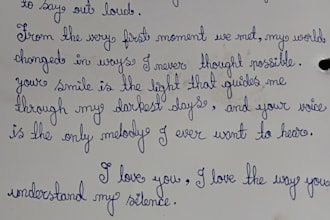 to say out loud.
From the very first moment we met, my world
changed in ways I never thought possible.
your smile is the light that guides me
through my darkest days, and your voice
is the only melody I ever want to hear.
I love you, I love the way you
understand my silence.